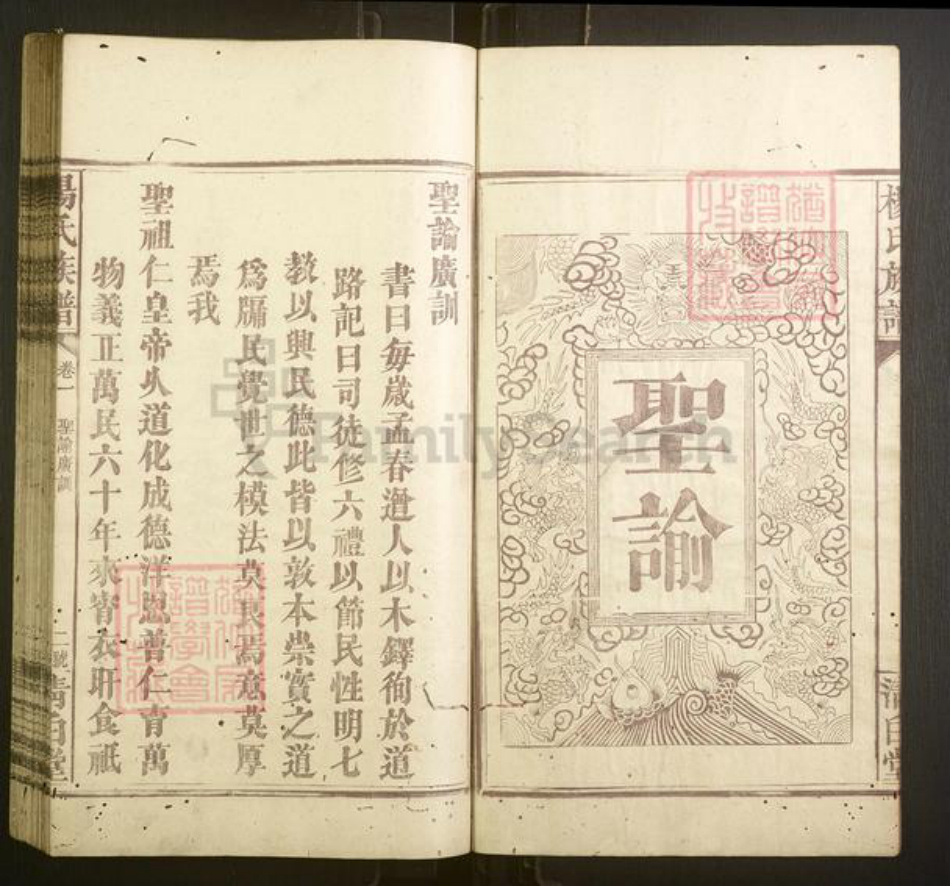 楊氏族譜
清白堂
聖諭
聖諭廣訓
書曰每歲孟春遒人以木鐸徇於道
路記曰司徒修六禮以節民性明七
教以興民德此皆以敦本崇實之道
爲牖民覺世之模法莫良焉意莫厚
焉我
聖祖仁皇帝乆道化成德洋恩普仁育萬
物義正萬民六十年來宵衣旰食祗
楊氏族譜
卷一
聖諭廣訓
清白堂
FamilySearch